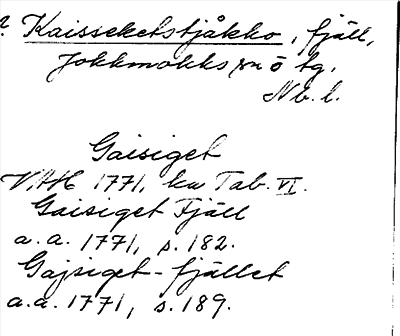 Kaisseketstjåkko, fjäll,
Jokkmokks sn ö tg.
Nb. l.
Gaisiget
VAH 1771, ka Tab. VI.
Gaisiget Fjäll
a. a. 1771, s. 182.
Gajsiget-fjället
a. a. 1771, s. 189.